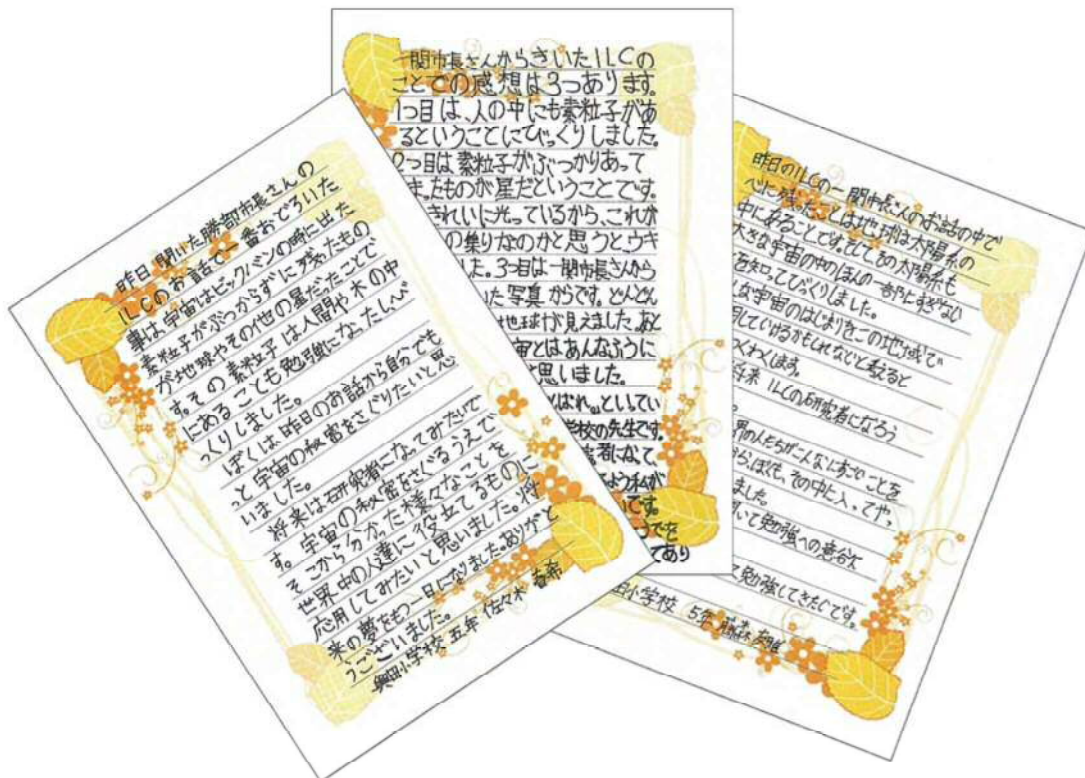 昨日聞いた勝部市長さんの
ILCのお話で一番おどろいた
事は、宇宙はビックバンの時に出た
素粒子がぶつからずに残ったもの
が地球やその他の星だったことで
す。その素粒子は人間や木の中
にあることも勉強になったしび
っくりしました。
ぼくは昨日のお話から自分でも
っと宇宙の秘密をさぐりたいと思
いました。
将来は研究者になってみたいで
す。宇宙の秘密をさぐるうえで
そこから分かった様々なことを
世界中の人達に役立てるものに
応用してみたいと思いました。将
来の夢をもつ一日になりました。ありがと
うございました。
興田小学校 五年 佐々木 春希
一関市長さんからきいたILCの
ことでの感想は3つあります。
1つ目は、人の中にも素粒子があ
るということにびっくりしました。
2つ目は素粒子がぶつかりあって
きったものが星だということです。
きれいに光っているから、これが
の集りなのかと思うとウキ
した。3つ目は一関市長さんから
いた写真からです。どんどん
地球が見えました。あと
宙とはあんなふうに
と思いました。
ばれ。」といってい
学校の先生です。
者になって、
よう私が
です。
つでを
てあり
昨日のILCの一関市長さんのお話の中で
心に残ったことは地球は太陽系の
中にあることです。そしてその太陽系も
大きな宇宙の中のほんの一部にすぎない
を知ってびっくりしました。
な宇宙のはじまりをこの地域で
明していけるかもしれないと考えると
くわくします。
将来 ILCの研究者になろう
界の人たちがこんなにまでことを
から、ぼくも、その中に入ってや
ました。
聞いて勉強への意欲
て勉強してきたいです。
田小学校 5年